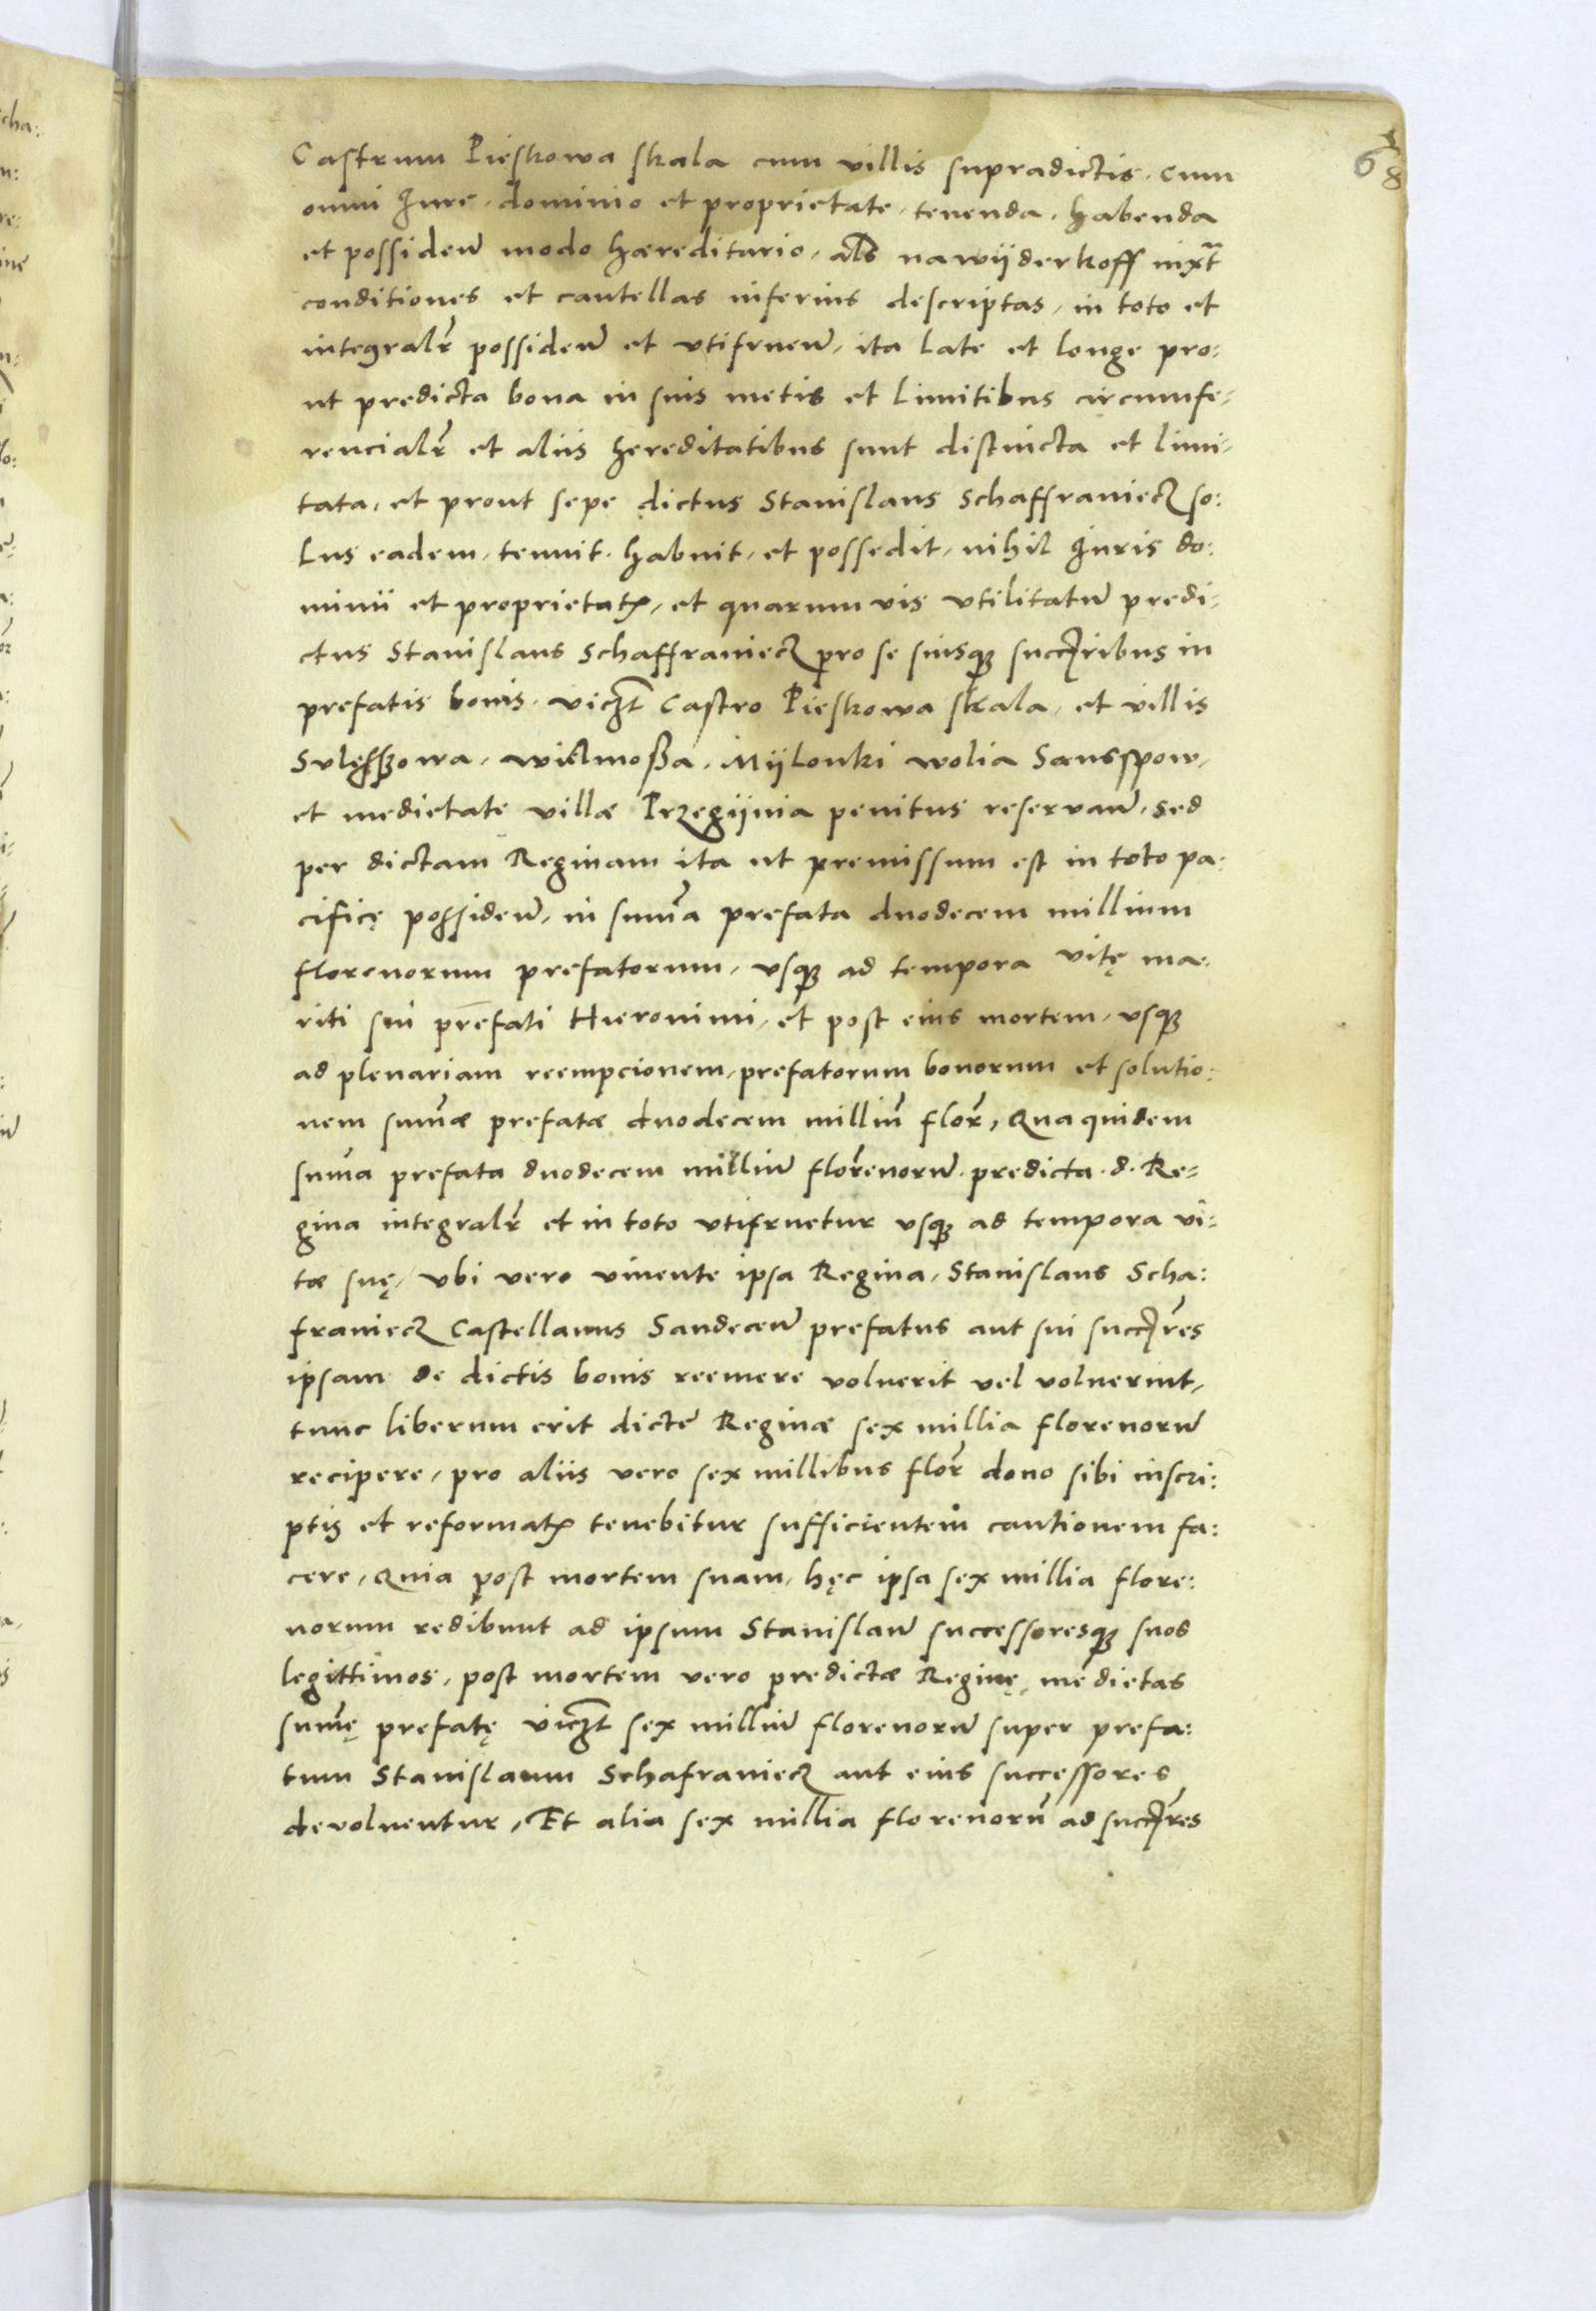 68
Castrum Pieskowa skala cum villis supradictis. cum
omni Iure. dominio et proprietate. tenenda. habenda
et possidend modo hæreditario. als nawÿderkoff iuxt
conditiones et cautellas inferius descriptas, in toto et
integralr possidend et vtifruend, ita late et longe pro:
ut predicta bona in suis metis et limitibus circumfe-
rencialr et aliis hereditatibus sunt distincta et limi-
tata, et prout sepe dictus Stanislaus Schaffraniecz so:
lus eadem, tenuit. habuit, et possedit, nihil Iuris do:
minii et proprietatis, et quarum vis vtilitatum predi-
ctus Stanislaus Schaffraniecz pro se suisque succribus in
prefatis bonis. viczt Castro Pieskowa skala, et villis
Sulęssowa, wielmoßa. Mÿlonki wolia Sansspow,
et medietate villæ Przegÿnia penitus reservand. sed
per dictam Reginam ita ut premissum est in toto pa.
cificę possidend, in summa prefata duodecem millium
florenorum prefatorum, vsque ad tempora vitę ma.
riti sui prefati Hieronimi, et post eius mortem, vsque
ad plenariam reempcionem, prefatorum bonorum et solutio:
nem summæ prefatæ duodecem milliū flor, Qua quidem
summa prefata duodecem milliū florenorū. predicta. d. Re-
gina integralr et in toto vtifruetur vsque ad tempora vi-
tæ suę, vbi vero vivente ipsa Regina, Stanislaus Scha:
franiecz Castellanus Sandecen prefatus aut sui succres
ipsam de dictis bonis reemere voluerit vel voluerint,
tunc liberum erit dicte Reginæ sex millia florenorū
recipere, pro aliis vero sex millibus flor dono sibi inscri:
ptis et reformatis tenebitur sufficientem cautionem fa:
cere, Quia post mortem suam, hęc ipsa sex millia flore:
norum redibunt ad ipsum Stanislaū successoresque suos
legittimos, post mortem vero predictæ Reginę, medietas
summę prefatę viczt sex milliū florenorū super prefa:
tum Stanislaum Schafraniecz aut eius successores
devoluentur, Et alia sex millia florenorū ad succres